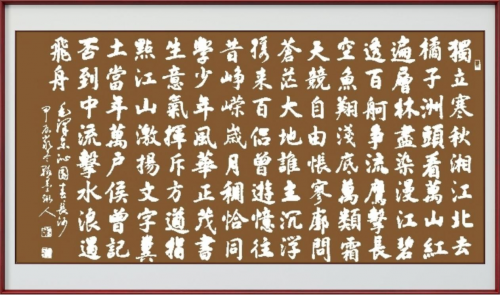 獨立寒秋湘江北去
橘子洲頭看萬山紅
遍層林盡染漫江碧
透百舸爭流鷹擊長
空魚翔淺底萬類霜
天競自由悵寥廓問
蒼茫大地誰主沉浮
携来百侣曾遊憶往
昔崢嶸歲月稠恰同
學少年風華正茂書
生意氣揮斥方遒指
點江山激揚文字糞
土當年萬户侯曾記
否到中流擊水浪遏
飛舟
毛澤東沁園春長沙